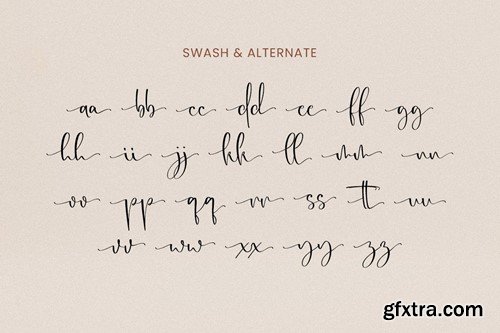 SWASH & ALTERNATE
aa bb cc dd ee ff gg
hh ii jj kk ll mm nn
oo pp qq rr ss tt uu
vv ww xx yy zz
gfxtra.com